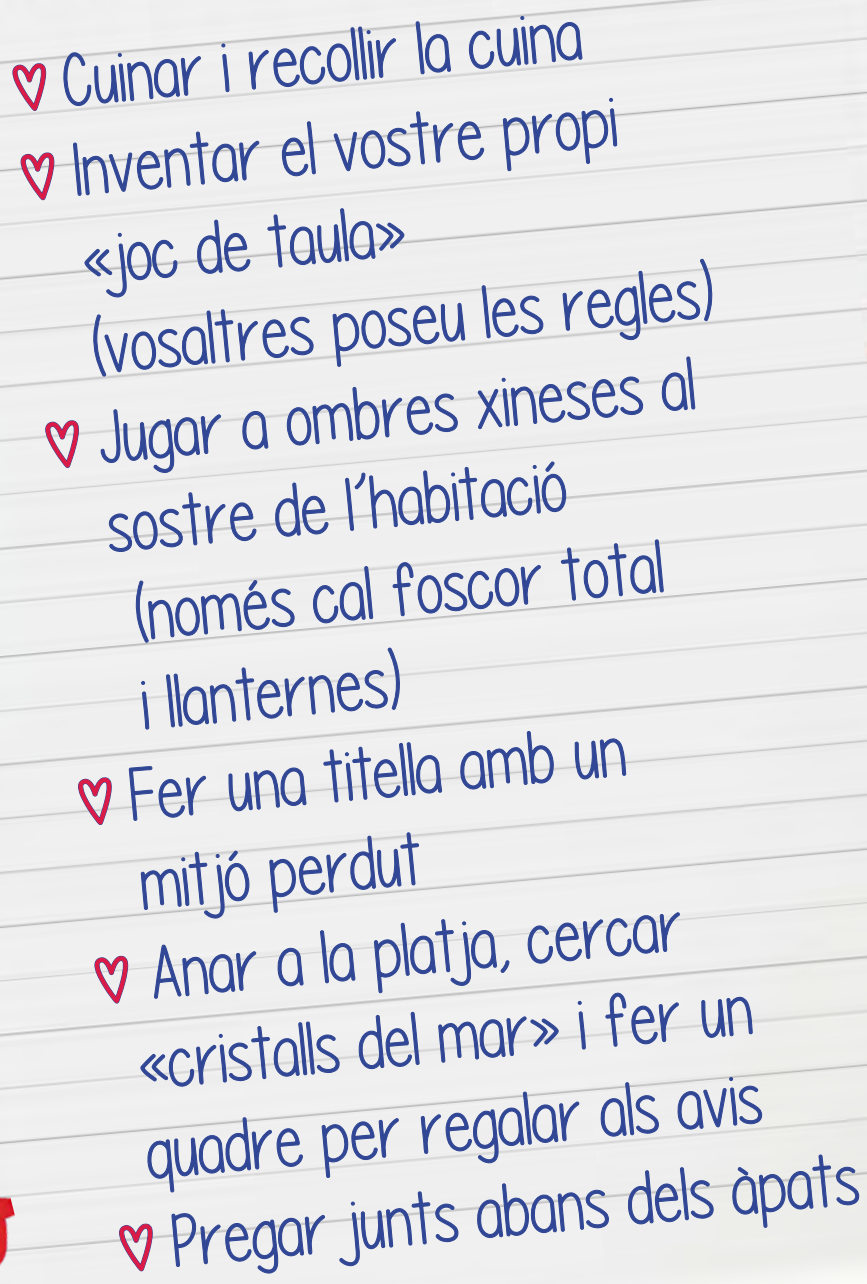 Cuinar i recollir la cuina
Inventar el vostre propi
«joc de taula»
(vosaltres poseu les regles)
Jugar a ombres xineses al
sostre de l'habitació
(només cal foscor total
i llanternes)
Fer una titella amb un
mitjó perdut
Anar a la platja, cercar
«cristalls del mar» i fer un
quadre per regalar als avis
Pregar junts abans dels àpats